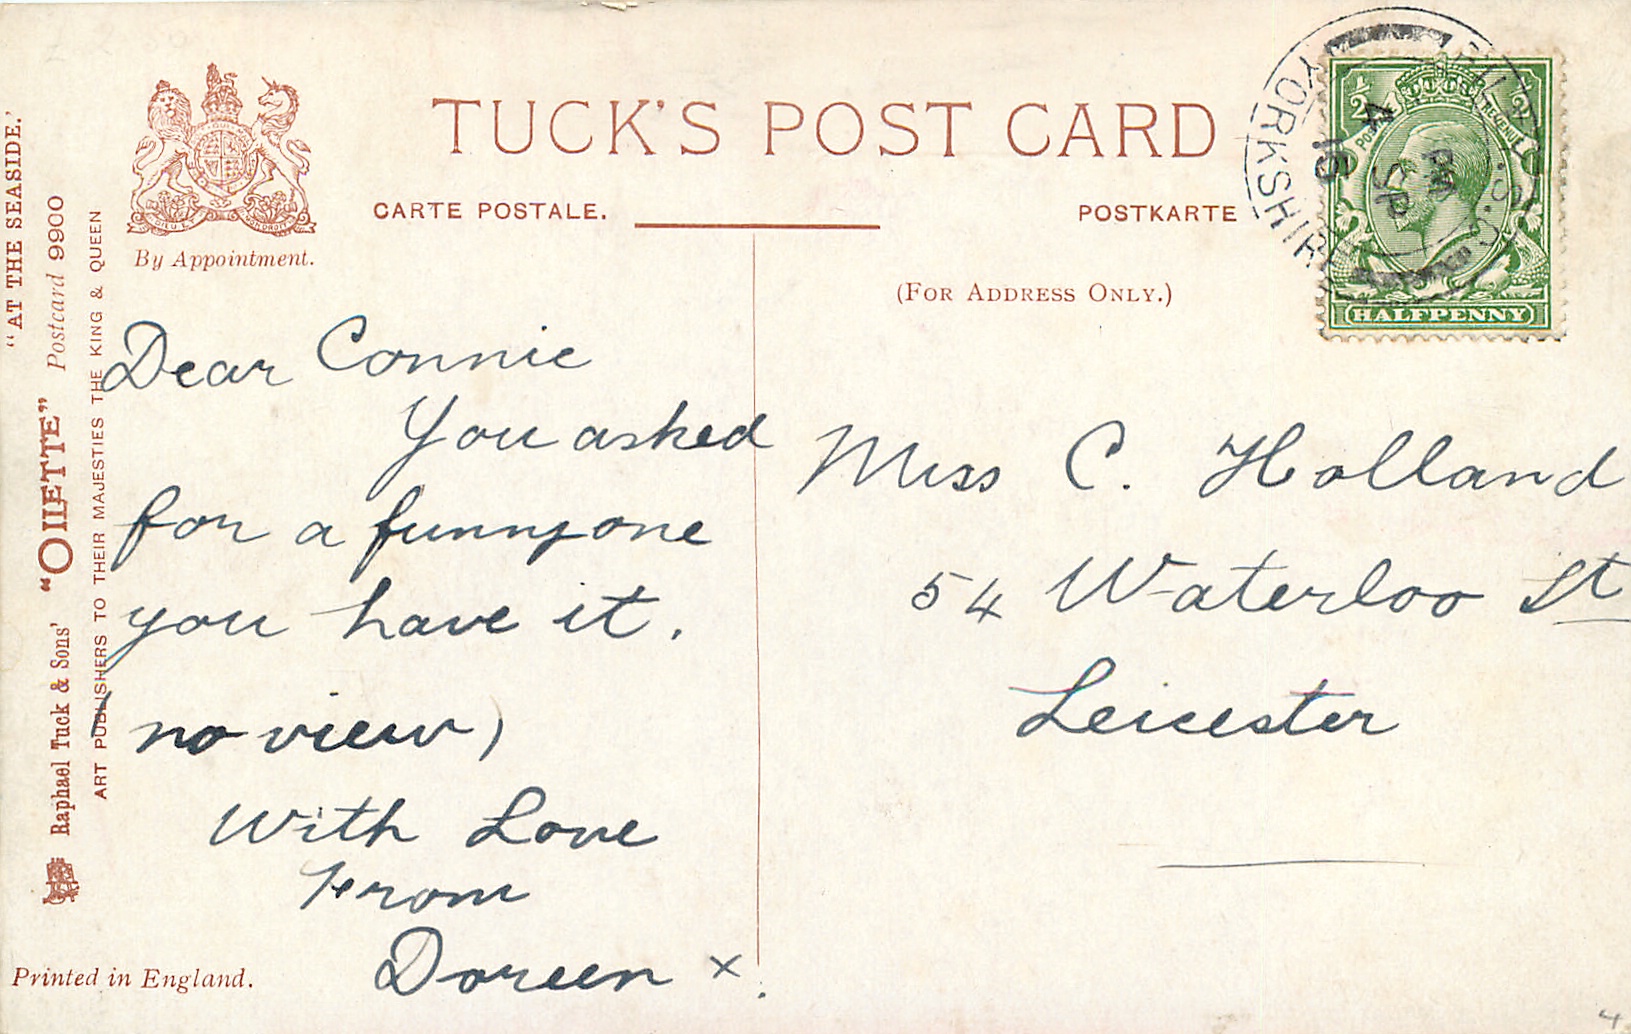 TUCK'S POST CARD
CARTE POSTALE.
POSTKARTE
(FOR ADDRESS ONLY.)
By Appointment.
"AT THE SEASIDE."
Raphael Tuck & Sons' "OILETTE" Postcard 9900
ART PUBLISHERS TO THEIR MAJESTIES THE KING & QUEEN
Printed in England.
Dear Connie
You asked
for a funny one
you have it.
(no view)
With Love
From
Doreen x.
Miss C. Holland
54 Waterloo St
Leicester
YORKSHIRE
PM
4 SP
15
½ ½
POSTAGE REVENUE
HALFPENNY
4